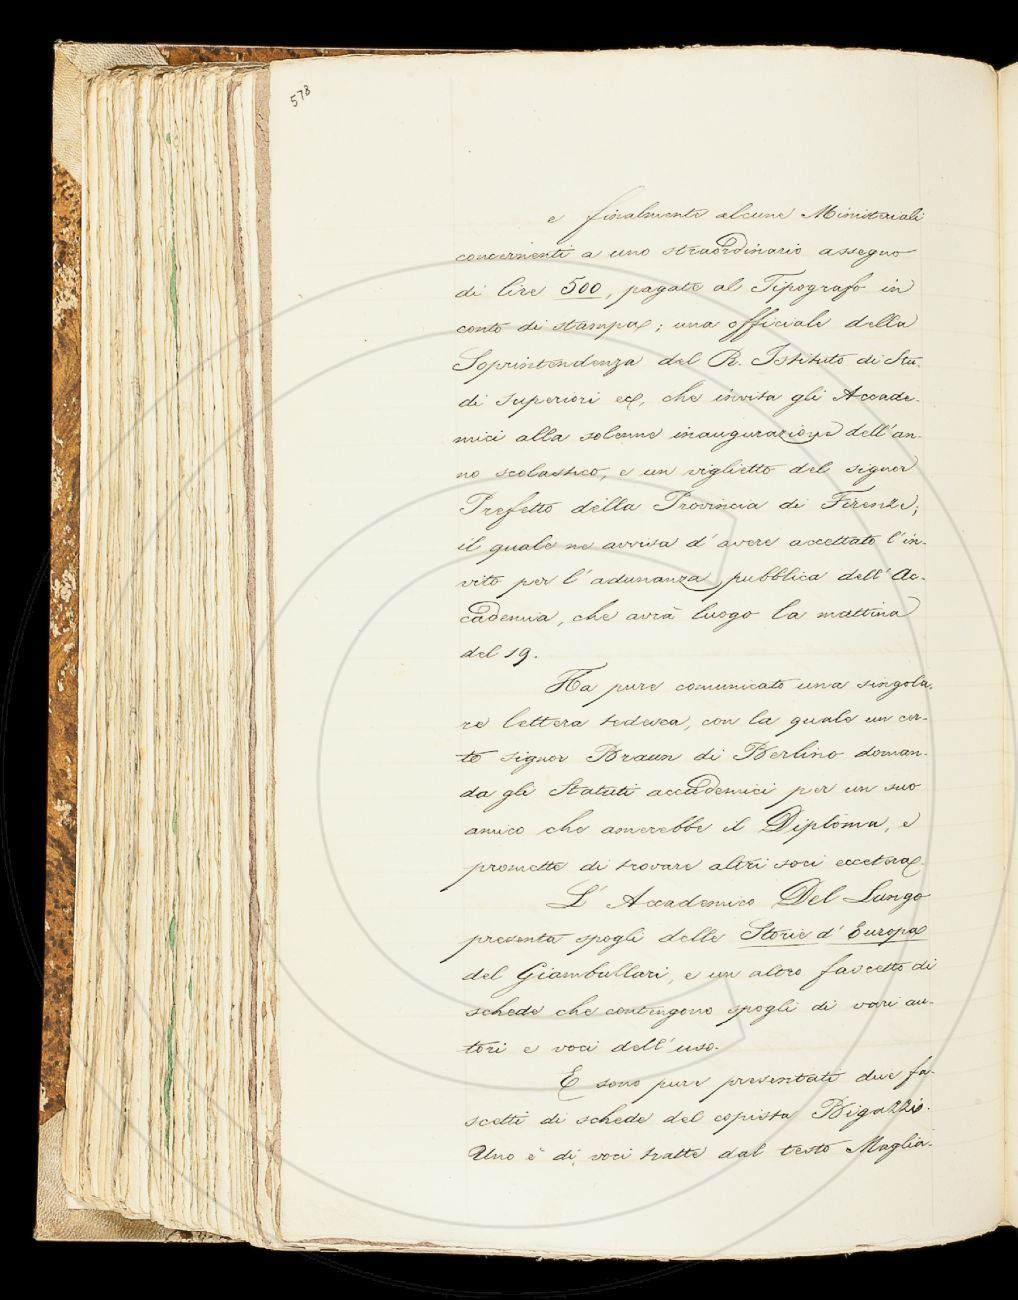 578
e finalmente alcune Ministeriali
concernenti a uno straordinario assegno
di lire 500, pagate al Tipografo in
conto di stampa; una officiale della
Soprintendenza del R. Istituto di Stu-
di superiori ec, che invita gli Accade-
mici alla solenne inaugurazione dell'an-
no scolastico, e un viglietto del signor
Prefetto della Provincia di Firenze,
il quale ne avvisa d'avere accettato l'in-
vito per l'adunanza pubblica dell'Ac-
cademia, che avrà luogo la mattina
del 19.
Ha pure comunicato una singola-
re lettera tedesca, con la quale un cer-
to signor Braun di Berlino doman-
da gli Statuti accademici per un suo
amico che amerebbe il Diploma, e
promette di trovare altri soci eccetera.
L'Accademico Del Lungo
presenta spogli delle Storie d'Europa
del Giambullari, e un altro fascetto di
schede che contengono spogli di vari au-
tori e voci dell'uso.
E sono pure presentati due fa-
scetti di schede del copista Bigazzi.
Uno è di voci tratte dal testo Maglia-